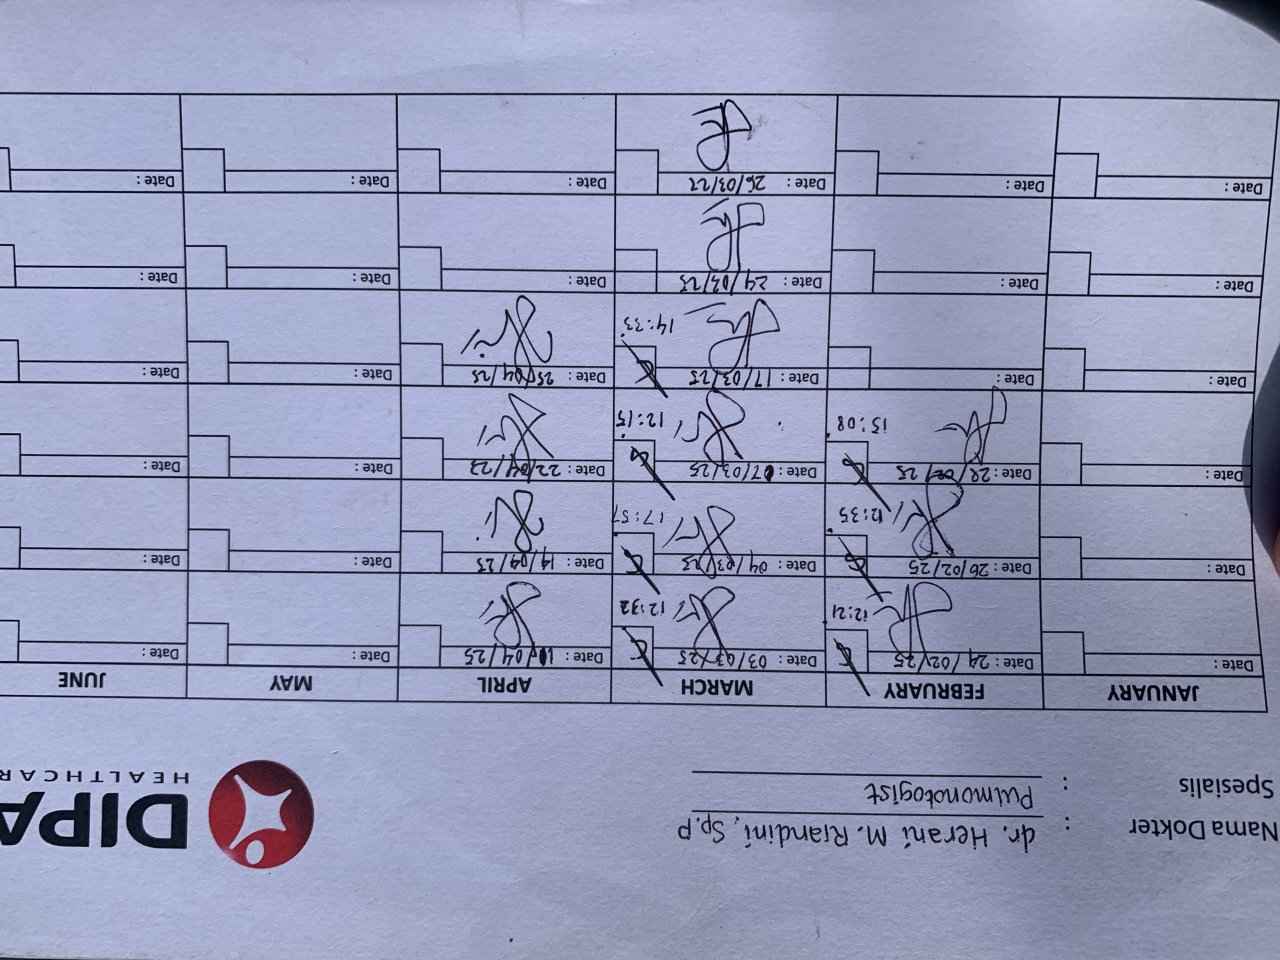 Nama Dokter : dr. Herani M. Riandini, Sp.P DIPA
Spesialis : Pulmonologist HEALTHCAR
JANUARY FEBRUARY MARCH APRIL MAY JUNE
Date : Date : 24/02/25 Date : 03/03/25 Date : 10/04/25 Date : Date :
12:21 12:32
Date : Date : 26/02/25 Date : 04/03/25 Date : 14/04/25 Date : Date :
12:35 17:57
Date : Date : 28/02/25 Date : 07/03/25 Date : 22/04/25 Date : Date :
15:08 12:15
Date : Date : Date : 17/03/25 Date : 25/04/25 Date : Date :
14:33
Date : Date : Date : 24/03/25 Date : Date : Date :
Date : Date : Date : 26/03/25 Date : Date : Date :